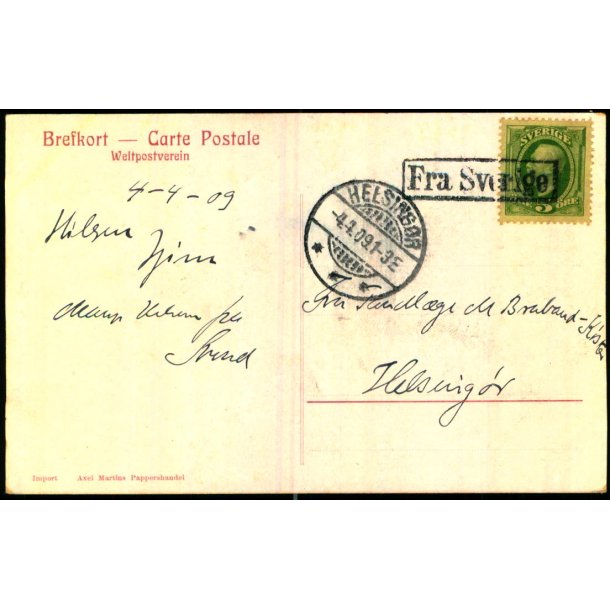 Brefkort — Carte Postale
Weltpostverein
4-4-09
Hilsen
Mange Hilsen fra
Svend
Import Axel Martins Pappershandel
SVERIGE
5 ÖRE
Fra Sverige
HELSINGØR
-4.4.09.1-3E
Fru Tandlæge M Braband-
Helsingør